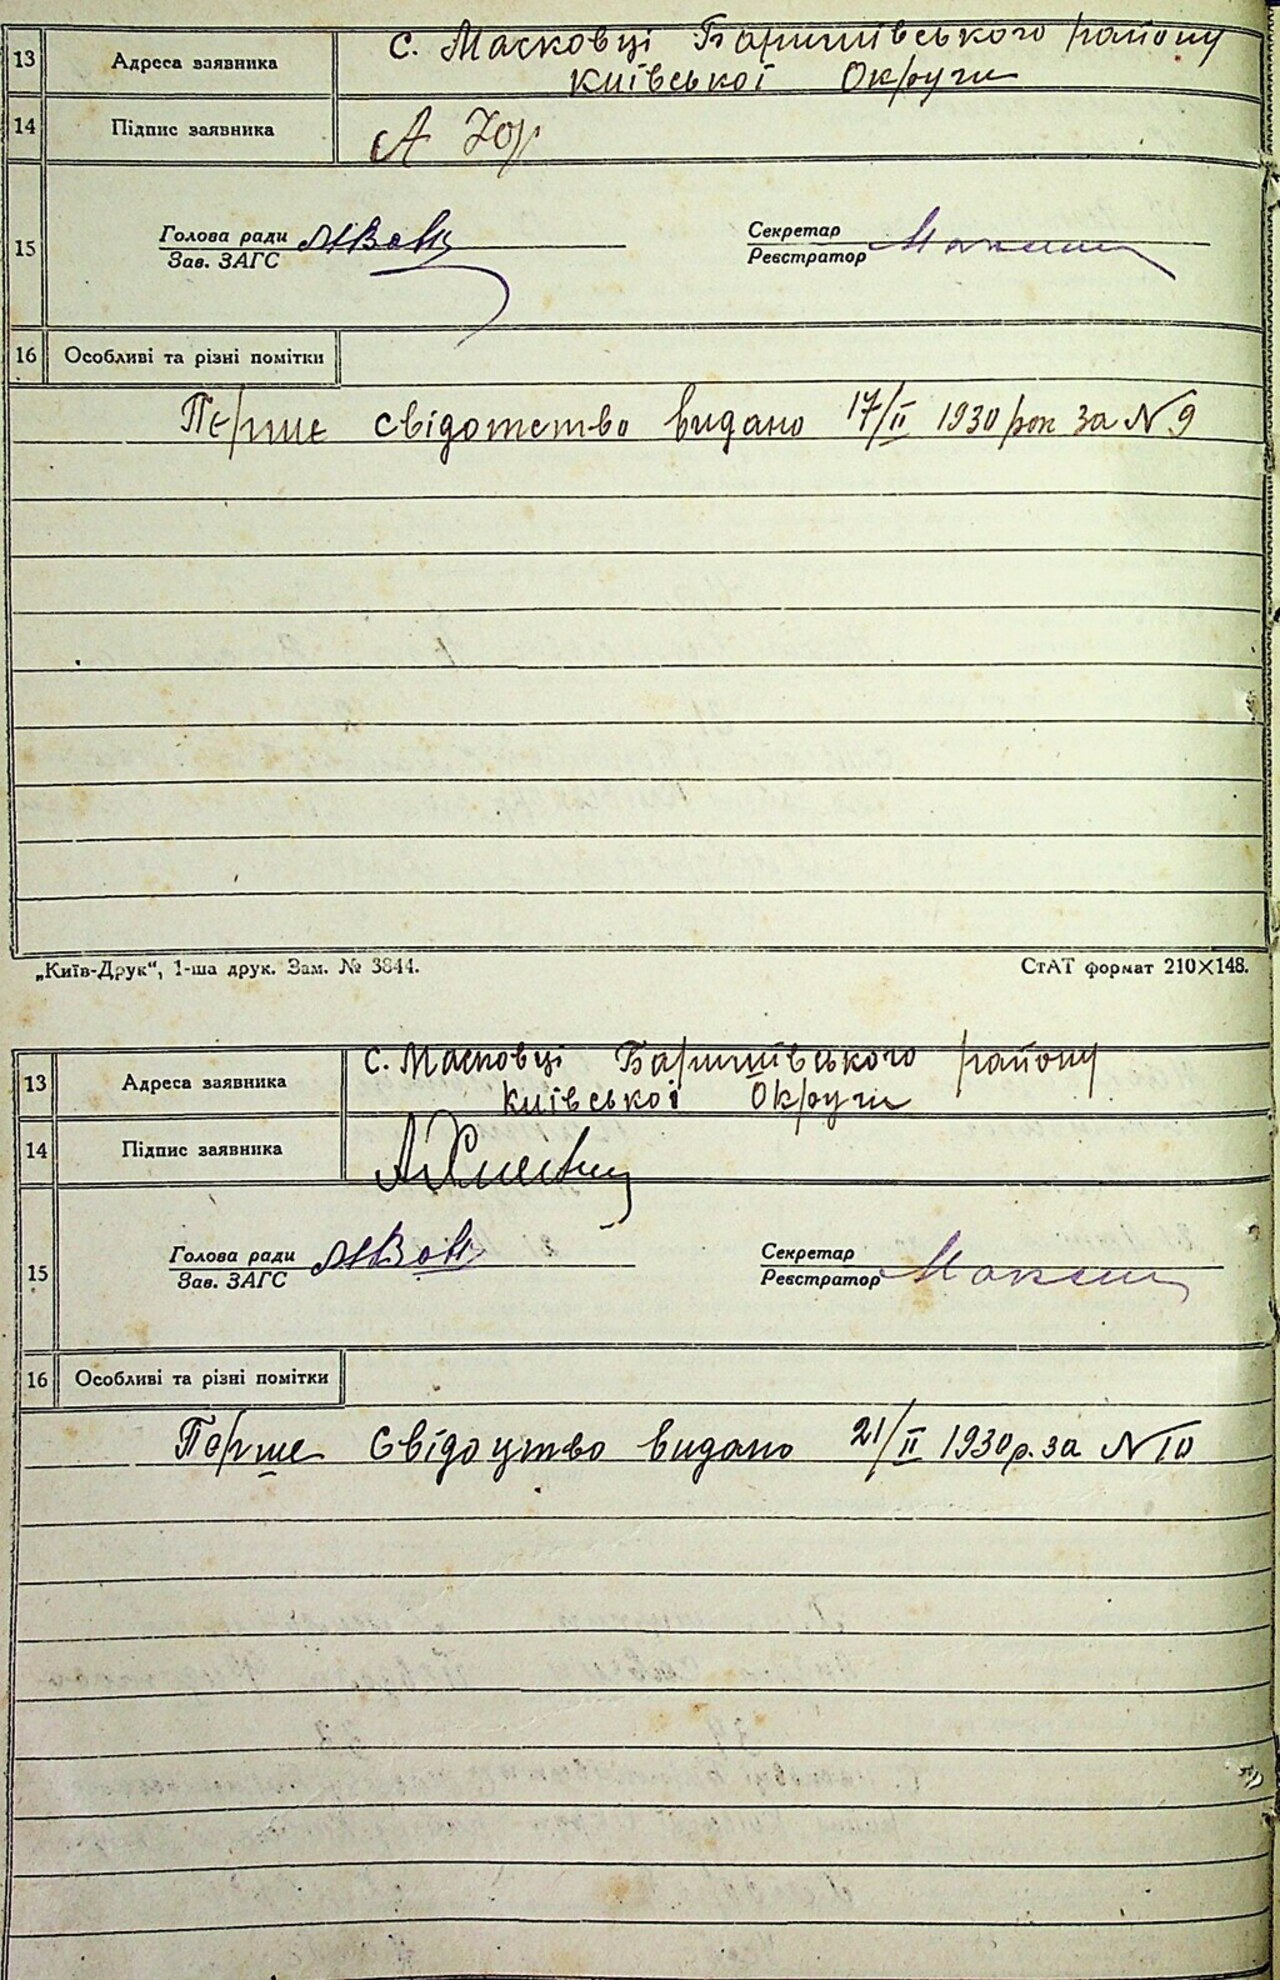 с. Масковці Баришівського району
13 Адреса заявника
Київської Округи
14 Підпис заявника А
Голова ради
Секретар
15
Зав. ЗАГС
Реєстратор
16 Особливі та різні помітки
Перше свідотство видано 17/II 1930 рок за N 9
„Київ-Друк“, 1-ша друк. Зам. № 3844. СтАТ формат 210×148.
с. Масковці Баришівського району
13 Адреса заявника
Київської Округи
14 Підпис заявника
Голова ради
Секретар
15
Зав. ЗАГС
Реєстратор
16 Особливі та різні помітки
Перше Свідоцтво видано 21/II 1930 р. за N 10